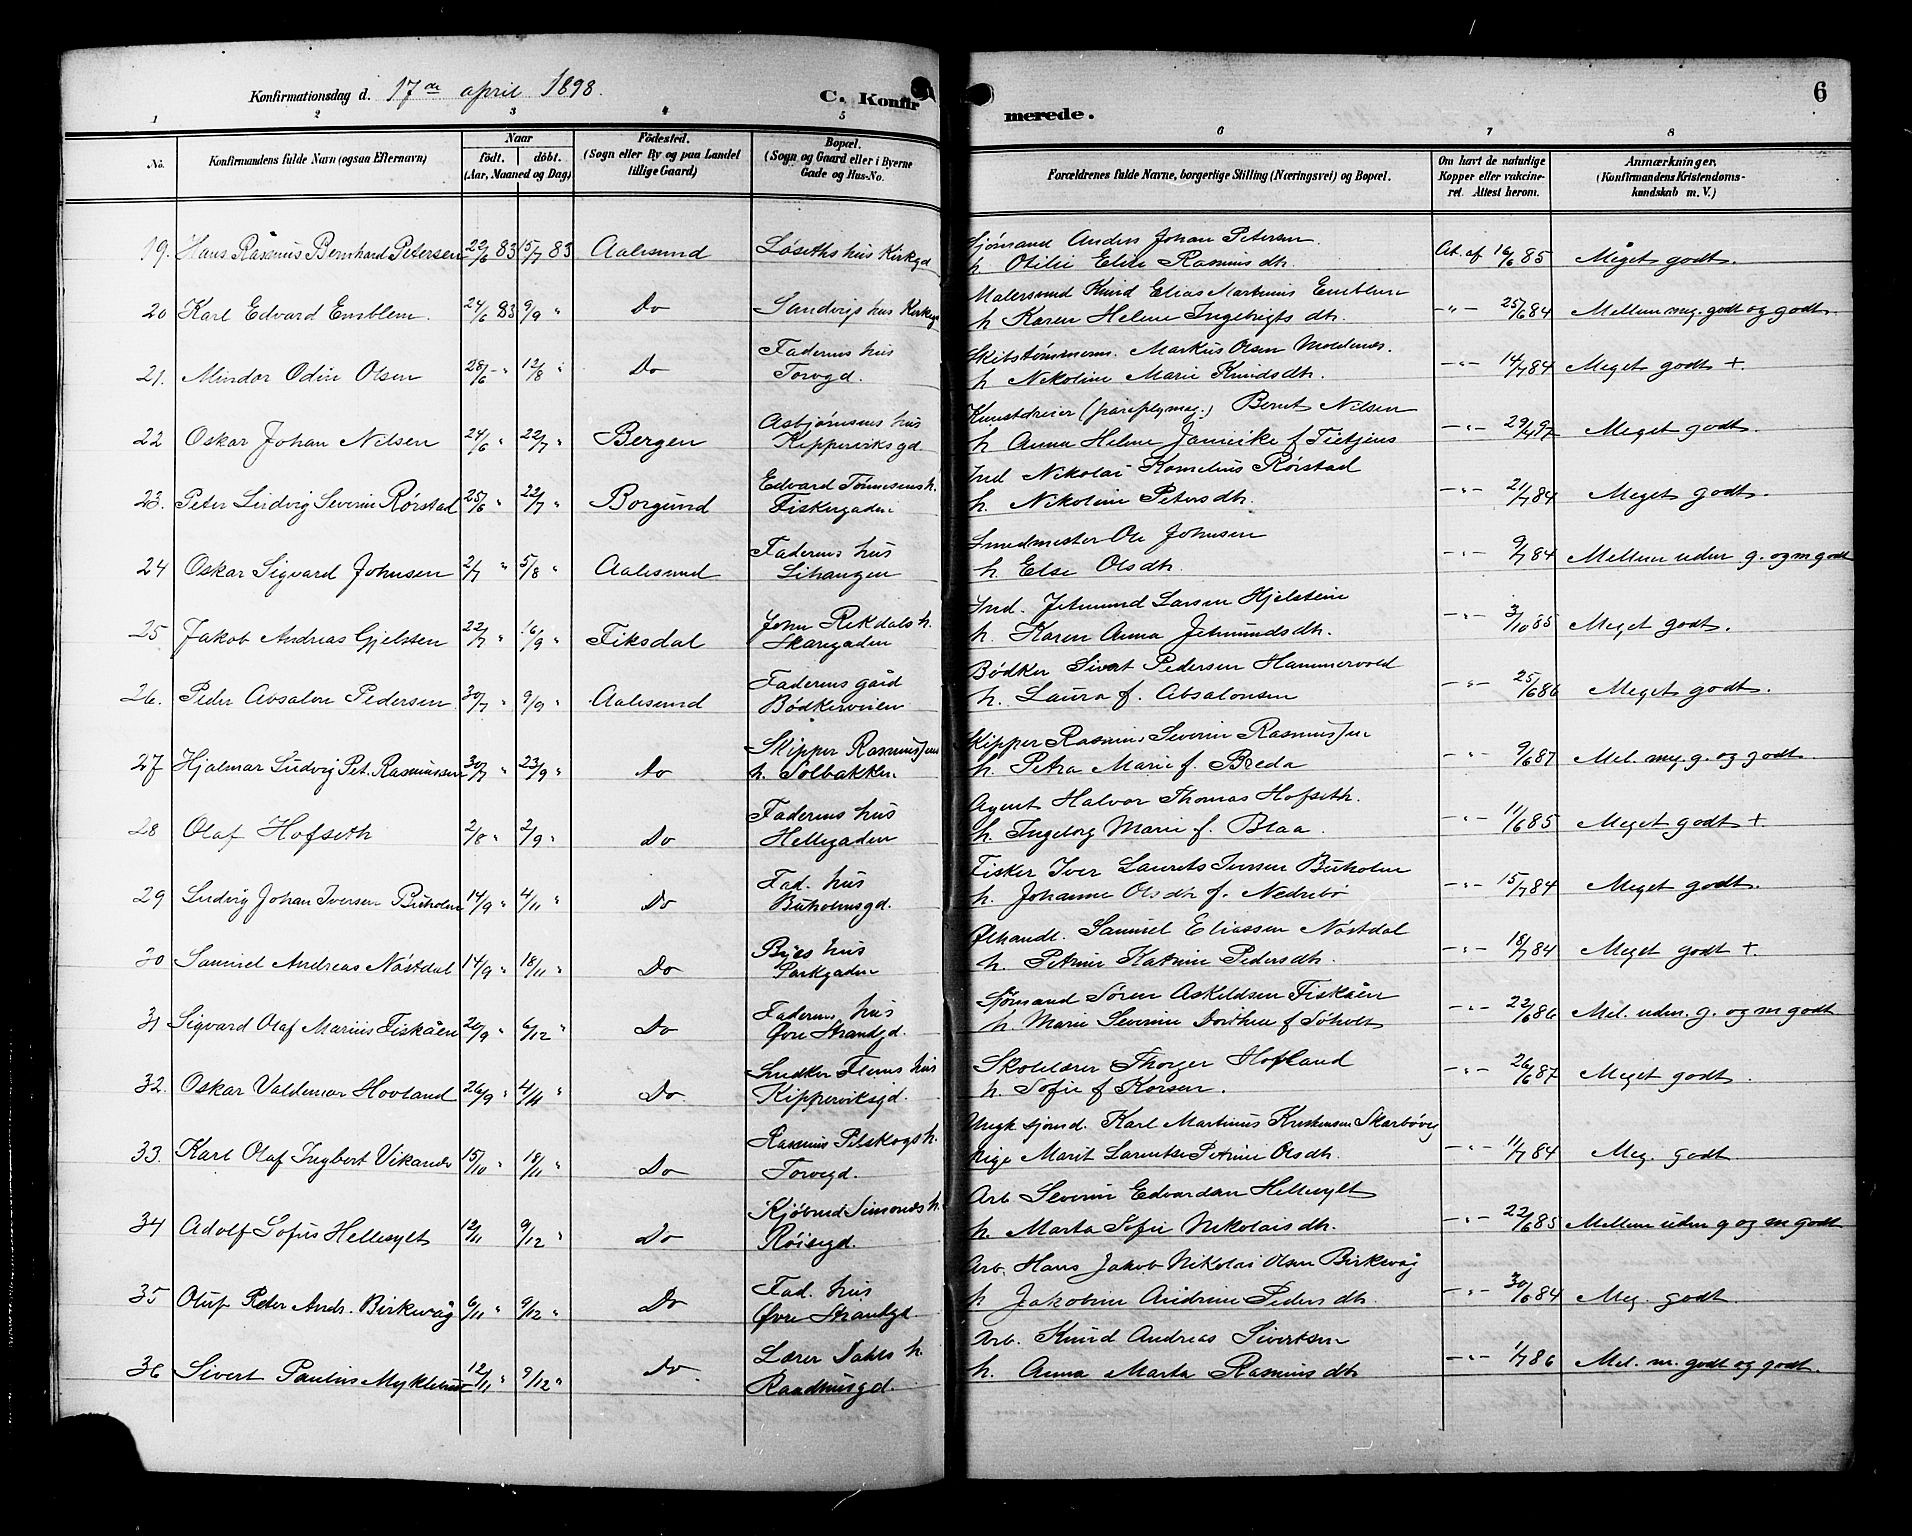 Konfirmationsdag d. 17de april 1898.
C. Konfir
merede.
6
1 2 3 4 5 6 7 8
No. Konfirmandens fulde Navn (ogsaa Efternavn) Naar födt. döbt. (Aar, Maaned og Dag) Födested. (Sogn eller By og paa Landet tillige Gaard) Bopæl. (Sogn og Gaard eller i Byerne Gade og Hus-No. Forældrenes fulde Navne, borgerlige Stilling (Næringsvei) og Bopæl. Om havt de naturlige Kopper eller vakcineret. Attest herom. Anmærkninger. (Konfirmandens Kristendomskundskab m. V.)
19. Hans Rasmus Bernhard Petersen 22/6 83 15/7 83 Aalesund Løseths hus Kirkgd Sjømand Anders Johan Petersen. h. Otilie Elise Rasmusdtr. At. af 16/6 85 Meget godt.
20 Karl Edvard Emblem. 24/6 83 9/9 " Do Sandvigs hus Kirkeg Malersvend Knud Elias Martinus Emblem h. Karen Helene Ingebrigts dtr. -"- 25/6 84 Mellem mg. godt og godt.
21. Mindor Odin Olsen 28/6 - " 12/8 " Do Faderens hus Torvgd. Skibstømmerm. Markus Olsen Moldenæs. h. Nikoline Marie Knudsdtr. -"- 14/7 84 Meget godt +.
22 Oskar Johan Nilsen 24/6 " 22/7 " Bergen Asbjørnsens hus Kipperviksgd Kunstdreier (paraplymag.) Bernt Nilsen h. Anna Helene Jannike f. Tietjens -"- 29/4 97 Meget godt.
23. Peter Ludvig Severin Rørstad 25/6 " 22/7 " Borgund Edvard Tønnesens h. Fiskergaden Ind Nikolai Kornelius Rørstad h. Nikoline Petersdtr. -"- 21/7 84 Meget godt.
24 Oskar Sigvard Johnsen 2/7 " 5/8 " Aalesund Faderens hus Lihaugen Smedmester Ole Johnsen h. Else Olsdtr. -"- 9/7 84 Mellem uden g. og m godt
25 Jakob Andreas Gjelsten 22/7 " 16/9 " Fiksdal John Rekdals h. Skaregaden Ind. Jetmund Larsen Hjelsteine h. Karen Anna Jetmundsdtr. -"- 3/10 85 Meget godt.
26. Peder Absalon Pedersen 30/7 " 9/9 " Aalesund Faderens gård Bødkerveien Bødker Sivert Pedersen Hammervold h. Laura f. Absalonsen -"- 25/6 86 Meget godt.
27 Hjalmar Ludvig Pet. Rasmussen 30/7 " 23/9 " Do Skipper Rasmussens h. Solbakken Skipper Rasmus Severin Rasmussen h. Petra Marie f. Breda -"- 9/6 87 Mel. mg. g. og godt.
28 Olaf Hofseth 2/8 " 2/9 " Do Faderens hus Hellegaden Agent Halvor Thomas Hofseth. h. Ingeborg Marie f. Blaa. -"- 11/6 85 Meget godt +
29 Ludvig Johan Iversen Buholm 14/9 " 4/11 " Do Fad. hus Buholmsgd. Fisker Iver Laurits Iversen Buholm h. Johanne Olsdtr f. Nedrebø -"- 15/7 84 Meget godt.
30 Samuel Andreas Nøstdal 14/9 " 18/11 " Do Byes hus Parkgaden Ølhandl. Samuel Eliassen Nøstdal h. Petrine Katrine Pedersdtr. -"- 18/7 84 Meget godt +.
31 Sigvard Olaf Marius Fiskåen 20/9 " 6/12 " Do Faderens hus Øvre Strandgd. Sjømand Søren Askildsen Fiskåen h. Marie Severine Dorthea f Søholt -"- 22/6 86 Mel. uden. g. og m godt
32. Oskar Valdemar Hovland 26/9 " 4/11 " Do. Snedker Flems hus Kipperviksgd. Skolelærer Thorger Hofland h. Sofie f Korsen. -"- 26/6 87 Meget godt.
33. Karl Olaf Ingbert Vikanes 15/10 " 18/11 " Do Rasmus Pilskogs h. Torvgd. Ungk sjømd. Karl Martinus Kristensen Skarbøvig Pige Marit Laurentse Petrine Olsdtr. -"- 11/7 84 Meg. godt.
34 Adolf Sofus Hellesylt 12/11 9/12 " Do Kjøbmd Simonæs h. Røisegd. Arb. Severin Edvardsen Hellesylt h. Marta Sofie Nikolaisdtr. -"- 22/6 85 Mellem uden g og m godt
35 Oluf Peter Andr. Birkevåg 6/11 " 9/12 " Do Fad. hus Øvre Strandgd. Arb. Hans Jakob Nikolai Olsen Birkevåg h Jakobine Andrine Peders dtr. -"- 30/6 84 Meg. godt.
36 Sivert Paulus Myklebust 12/11 " 9/12 " Do. Lærer Dahls h. Raadhusgd. Arb. Knud Andreas Sivertsen h. Anna Marta Rasmusdtr -"- 1/7 86 Mel. m. godt og godt.